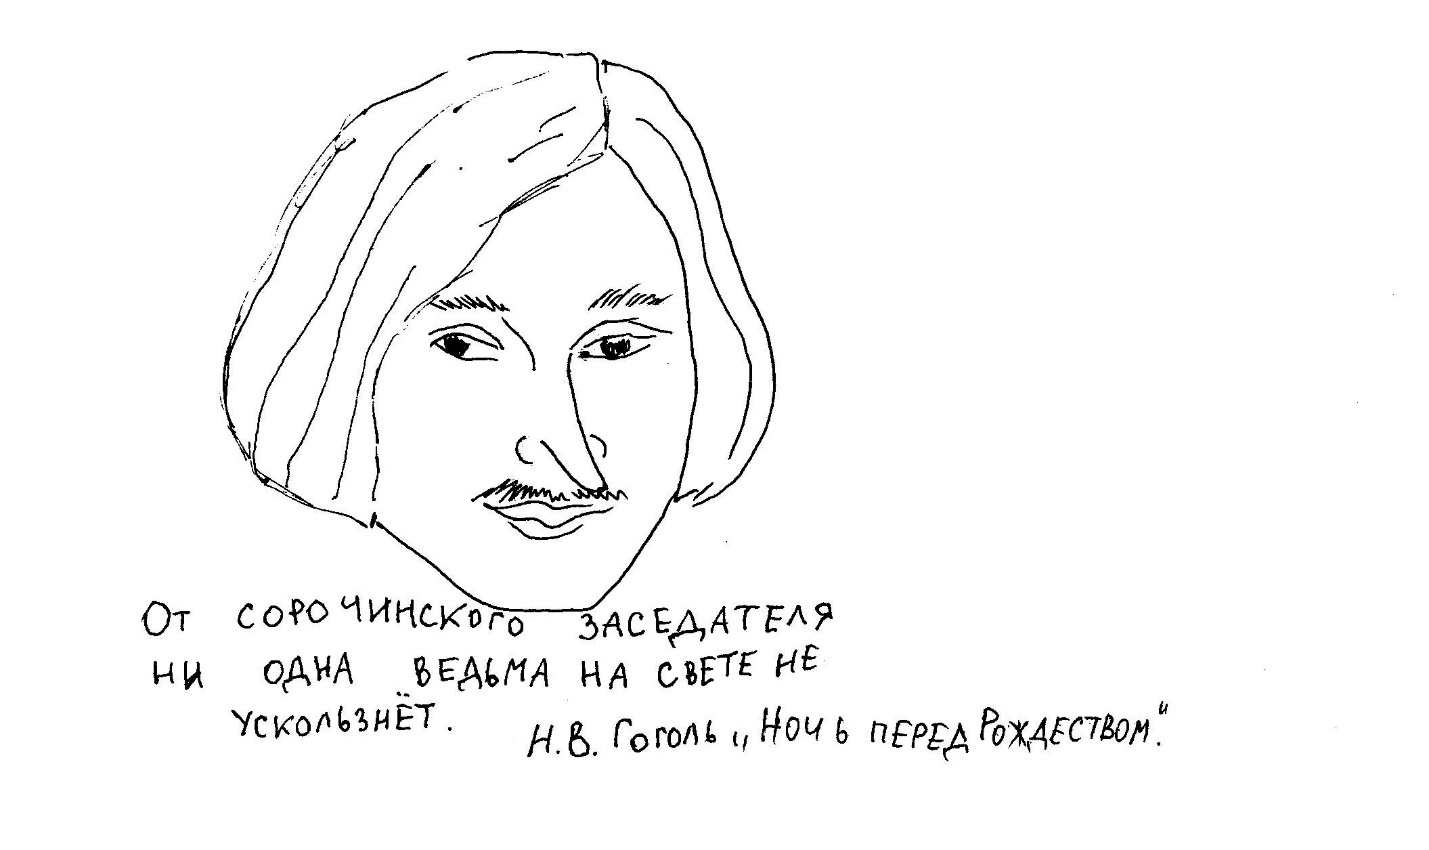 От сорочинского заседателя
ни одна ведьма на свете не
ускользнёт.
Н.В. Гоголь „Ночь перед Рождеством“.